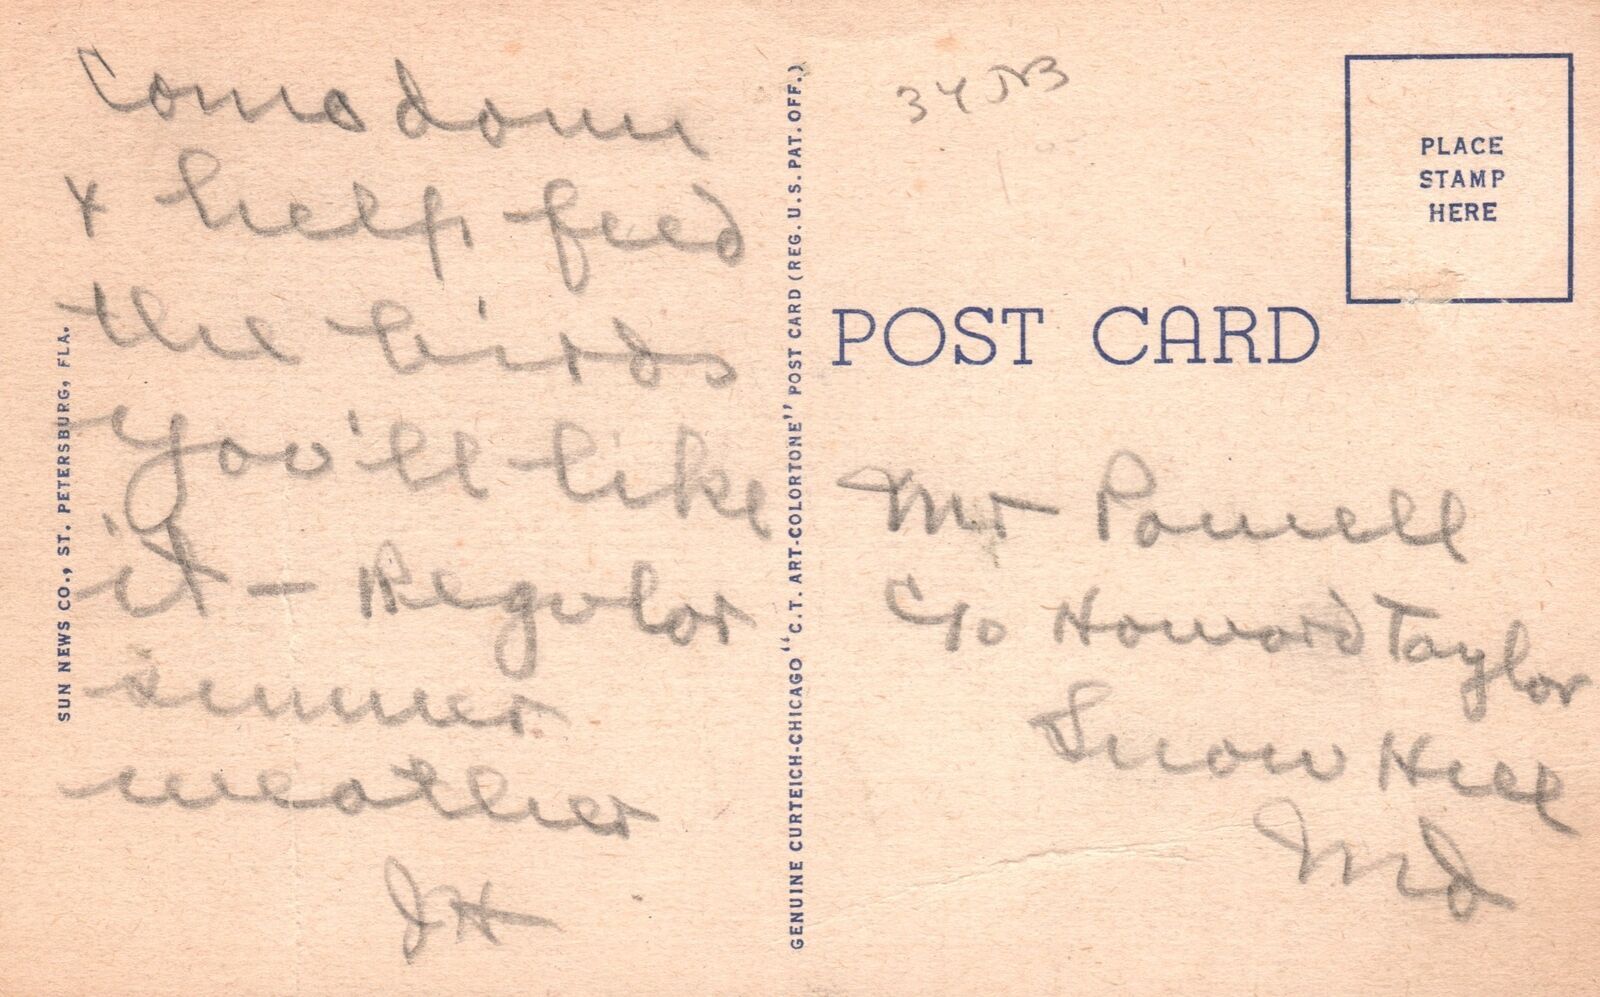 Come down
& help feed
the birds
You'll like
it - Regular
summer
weather
JH
SUN NEWS CO., ST. PETERSBURG, FLA.
GENUINE CURTEICH-CHICAGO "C.T. ART-COLORTONE" POST CARD (REG. U.S. PAT. OFF.)
PLACE
STAMP
HERE
POST CARD
Mr Powell
c/o Howard Taylor
Snow Hill
Md